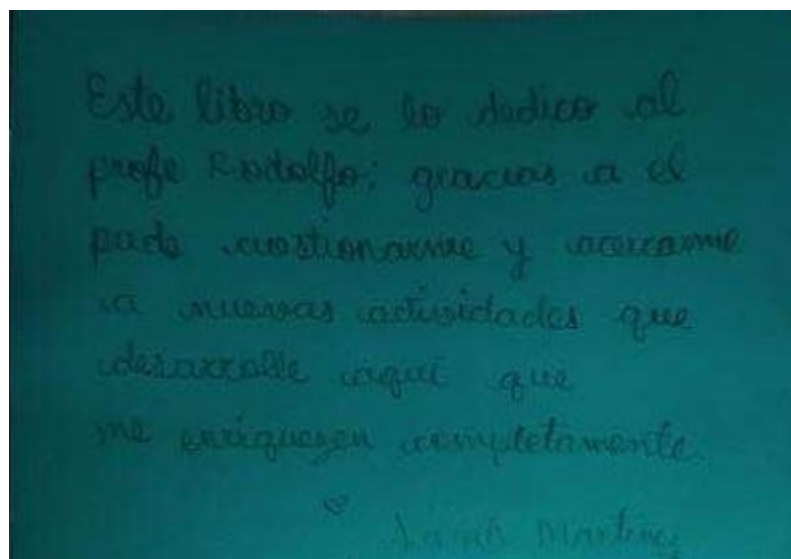 Este libro se lo dedico al
profe Rodolfo; gracias a el
pude cuestionarme y acercarme
a nuevas actividades que
desarrolle aqui que
me enriquezen completamente.
Martínez